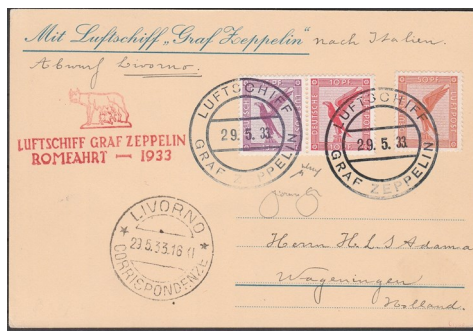 Mit Luftschiff „Graf Zeppelin" nach Italien.
Abwurf Livorno.
LUFTSCHIFF GRAF ZEPPELIN
ROMFAHRT — 1933
LUFTSCHIFF
29.5.33
GRAF ZEPPELIN
LUFTSCHIFF
29.5.33
GRAF ZEPPELIN
10 PF
DEUTSCHE
LUFTPOST
LIVORNO
29 5 33.16
CORRISPONDENZE
Herrn H.L.S Adama
Wageningen
Holland.